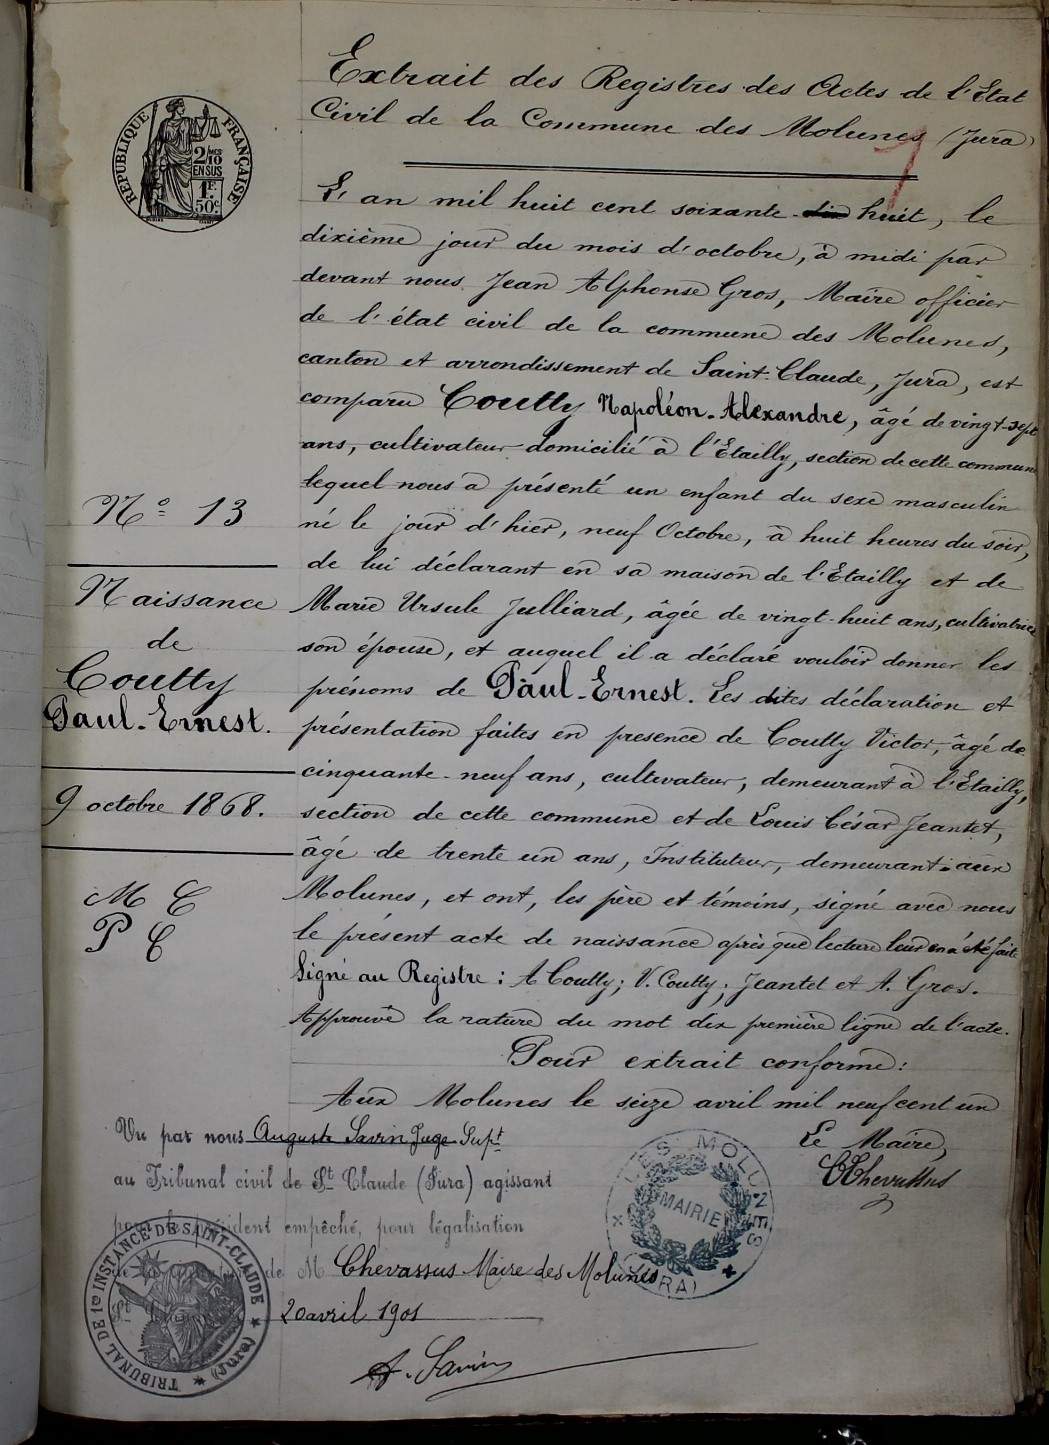 Extrait des Registres des Actes de l'Etat
Civil de la Commune des Molunes (Jura)
RÉPUBLIQUE FRANÇAISE
2/10
EN SUS
1F.
50c
L'an mil huit cent soixante dix huit, le
dixième jour du mois d'octobre, à midi par
devant nous Jean Alphonse Gros, Maire officier
de l'état civil de la commune des Molunes,
canton et arrondissement de Saint-Claude, Jura, est
comparu Coutty Napoléon-Alexandre, âgé de vingt-sept
ans, cultivateur domicilié à l'Etailly, section de cette commune
lequel nous a présenté un enfant du sexe masculin
né le jour d'hier, neuf Octobre, à huit heures du soir,
de lui déclarant en sa maison de l'Etailly et de
Marie Ursule Julliard, âgée de vingt-huit ans, cultivatrice
son épouse, et auquel il a déclaré vouloir donner les
prénoms de Paul-Ernest. Les dites déclaration et
présentation faites en presence de Coutty Victor, âgé de
cinquante-neuf ans, cultivateur, demeurant à l'Etailly,
section de cette commune et de Louis César Jeantet,
âgé de trente un ans, Instituteur, demeurant aux
Molunes, et ont, les père et témoins, signé avec nous
le présent acte de naissance après que lecture leur en a été faite
Signé au Registre : A Coutty; V. Coutty; Jeantet et A. Gros.
Approuvé la rature du mot dix première ligne de l'acte.
Pour extrait conforme :
Aux Molunes le seize avril mil neuf cent un
Le Maire,
CChevassus
No 13
Naissance
de
Coutty
Paul-Ernest.
9 octobre 1868.
M C
P C
Vu par nous Auguste Savin Juge Supt
au Tribunal civil de St Claude (Jura) agissant
pour le président empêché, pour légalisation
de M Chevassus Maire des Molunes
20 avril 1901
A. Savin
LES MOLUNES
MAIRIE
(JURA)
TRIBUNAL DE 1re INSTANCE DE SAINT-CLAUDE (JURA)